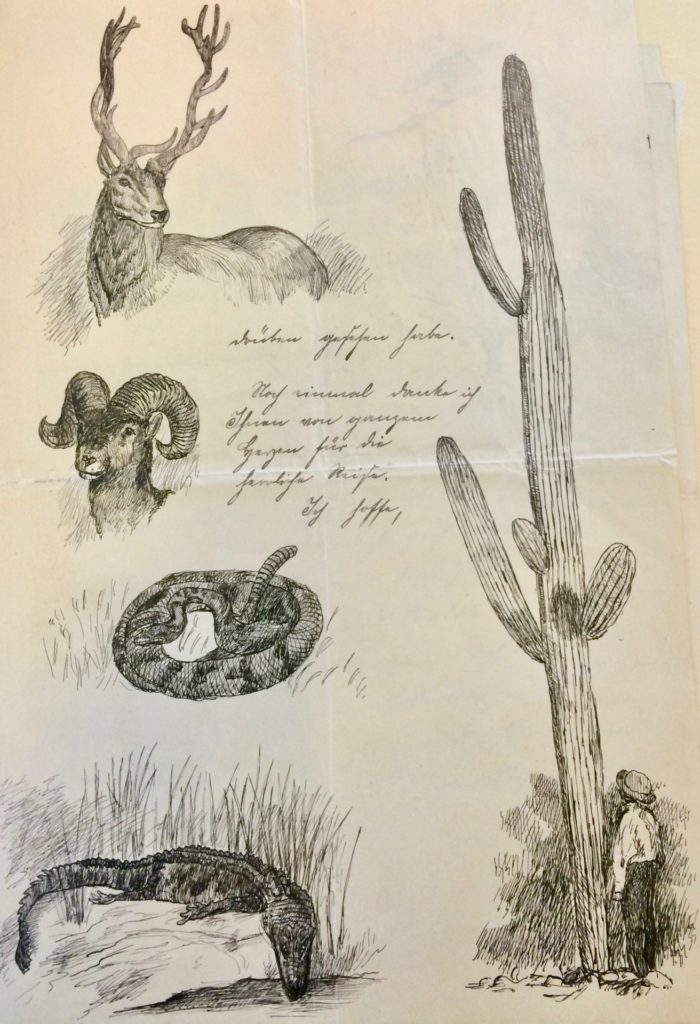 drüben gesehen habe.
Noch einmal danke ich
Ihnen von ganzem
Herzen für die
herrliche Reise.
Ich hoffe,
1